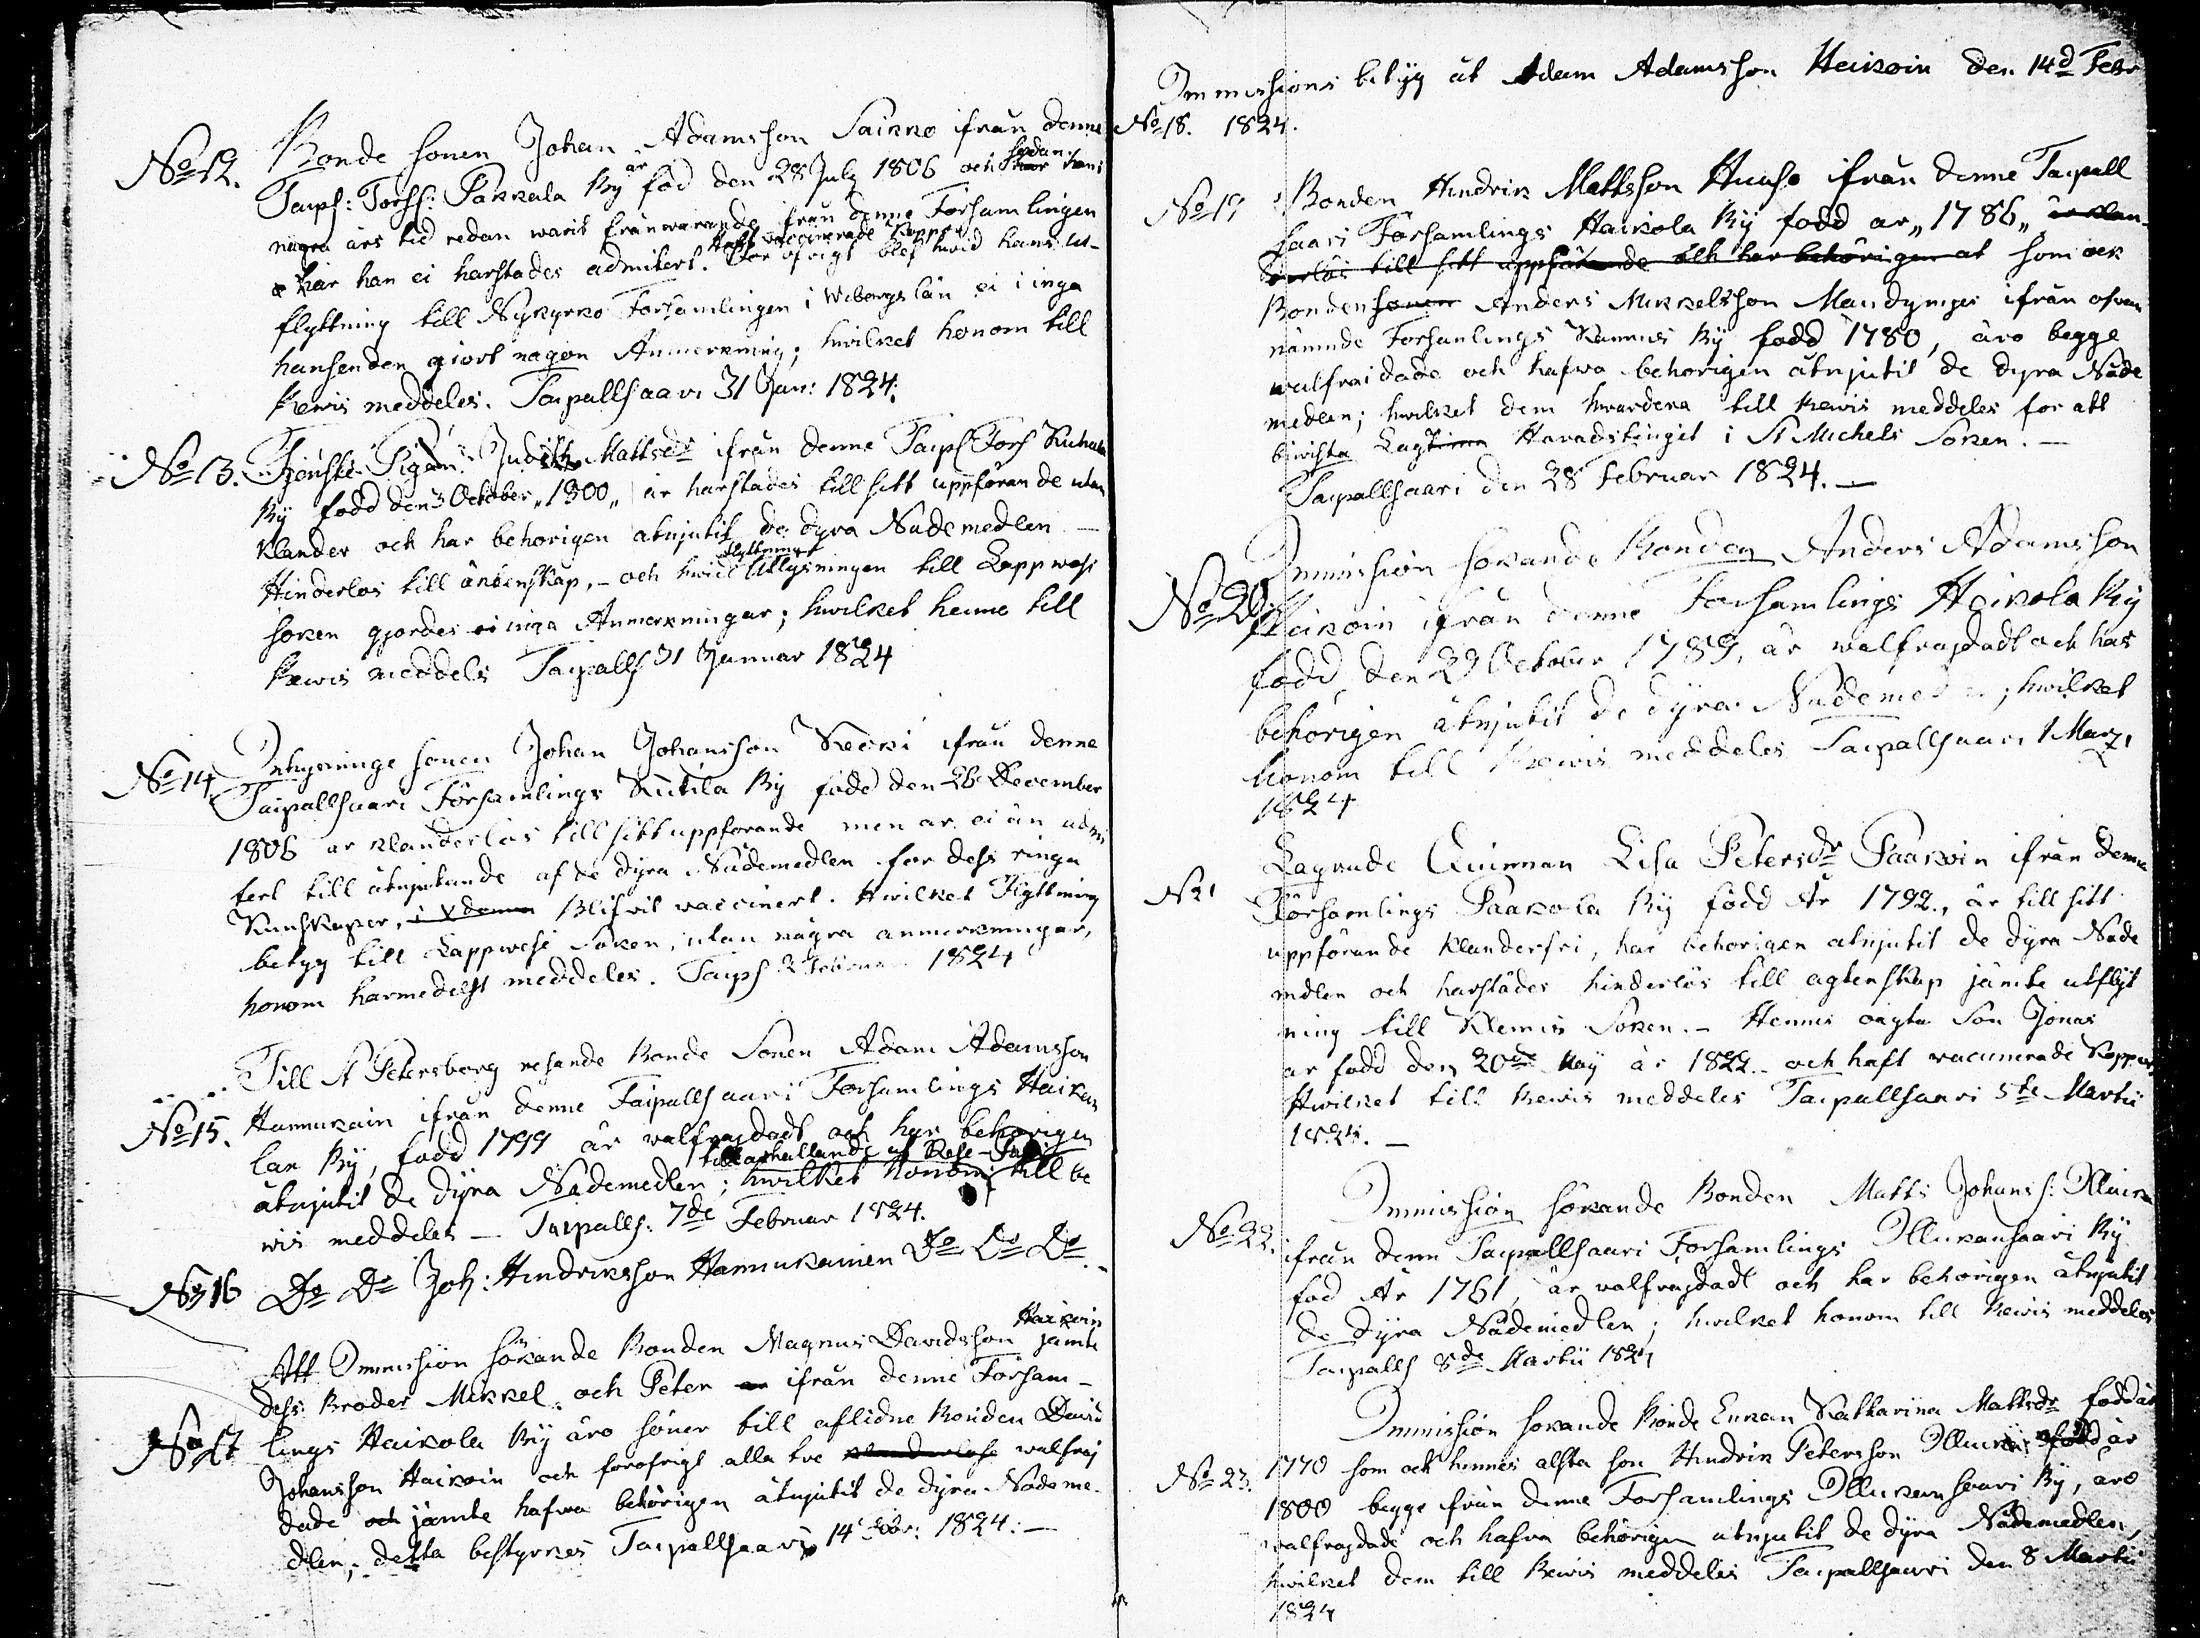 No 12. Bonde sonen Johan Adamsson Saikko ifrån denne
Taips: Förs: Pakkala By är född den 28 July 1806 och sedan hans
några års tid redan warit frånwarande från denne Församlingen
har han ei härstädes admitert. Haft vaccinerade Koppor. För öfrigt blef hwid hans ut-
flyttning till Nykyrko Församlingen i Wiborgs län ei i inga
hansenden giort någon Anmerkning; hwilket honom till
Bewis meddeles. Taipallsaari 31 Jan: 1824.
No 13. Tjenste Pigan Judith Mattsdr ifrån denne Taips Förs
By född den 3 October "1800" är härstädes till sitt uppförande utan
klander och har behörigen åtnjutit de dyra Nådemedlen —
Hinderlös till äktenskap, - och hwid flyttnings Utlysningen till Lappwesi
soken gjordes ei inga Anmerkningar; hwilket henne till
Bewis meddels Taipalls 31 Januar 1824
No 14 Inhysninge sonen Johan Johansson Keoki ifrån denne
Taipallsaari Församlings Kutila By född den 26 December
1806 är klanderlös till sitt uppförande men är ei än admi
tert till åtnjutande af de dyra Nådemedlen för dess ringa
Kunskaper, Blifvit vaccinert. Hwilket Flyttning
betyg till Lappwesi Soken, utan några anmerkningar,
honom harmedelst meddeles. Taips 2 Februar 1824
Till St Petersborg resande Bonde Sonen Adam Adamsson
No 15. Hannukain ifrån denne Taipallsaari Församlings Haiko
lan By, född 1799 är walfrajdadt och har behörigen
åtnjutit de dyra Nådemedlen; till erhållande af Rese-Pass hwilket honom till be
wis meddeles — Taipalls: 7de Februar 1824.
No 16 Do Do Joh: Hindriksson Hannukainen Do Do Do.
Att Immission sökande Bonden Magnus Davidsson Haikoin jämte
dess Broder Mikkel och Peter ifrån denne Församl-
No 17 lings Haikola By äro söner till aflidne Bonden David
Johansson Haikoin och föröfrigt alla tre klanderlöse walfraj
dade och jämte hafwa behörigen åtnjutit de dyra Nådeme-
dlen; detta bestyrkes Taipallsaari 14 Febr: 1824: —
Immissions betyg åt Adam Adamsson Heikoin den 14d Febr
No 18. 1824.
No 19 Bonden Hindrik Mattsson Huuhso ifrån denne Taipall
saari Församlings Haikola By född år "1786" är klan-
derlös till sitt uppförande och har behörigen at som ock
Bonden sonen Anders Mikkelsson Mandynger ifrån ofvan
nämnde Församlings Kammis By född 1780, äro begge
walfraidade och hafwa behörigen åtnjutit de dyra Nåde
medlen; hwilket dem hwardera till Bewis meddeles för att
biwista Lagtima Haradstinget i St Michels Soken. —
Taipallsaari den 28 Februar 1824. —
Immission sökande Bonden Anders Adamsson
No 20 Haikoin ifrån denne Församlings Haikola By
född den 29 October 1789, är walfrajdadt och har
behörigen åtnjutit de dyra Nådemedlen; hwilket
honom till Bewis meddeles Taipallsaari 1 Marz,
1824
No 21 Lägrade Quinnan Lisa Petersdr Paakoin ifrån denne
Församlings Paakola By född År 1792., är till sitt
uppförande klanderfri, har behörigen åtnjutit de dyra Nåde
mdlen och härstädes hinderlös till äktenskap jämte utflyt
ning till Klemis Soken. — Hennes oägta Son Jonas
är född den 20de May år 1822. och haft vaccinerade Koppor,
Hwilket till Bewis meddeles Taipallsaari 5te Martii
1824. —
Immission sökande Bonden Matts Johanss: Illuka
No 22. ifrån denn Taipallsaari Församlings Illukansaari By
föd År 1761, är walfrajdadt och har behörigen åtnjutit
de dyra Nådemedlen; hwilket honom till Bewis meddeles
Taipalls 8de Martii 1824
Immission sökande Bonde Enkan Katharina Mattsdr född år
No 23. 1770 som ock hennes älsta son Hindrik Petersson född år
1800 begge ifrån denne Församlings Illukansaari By, äro
walfrajdade och hafva behörigen åtnjutit de dyra Nådemedlen,
hwilket dem till Bewis meddeles Taipallsaari den 8 Martii
1824